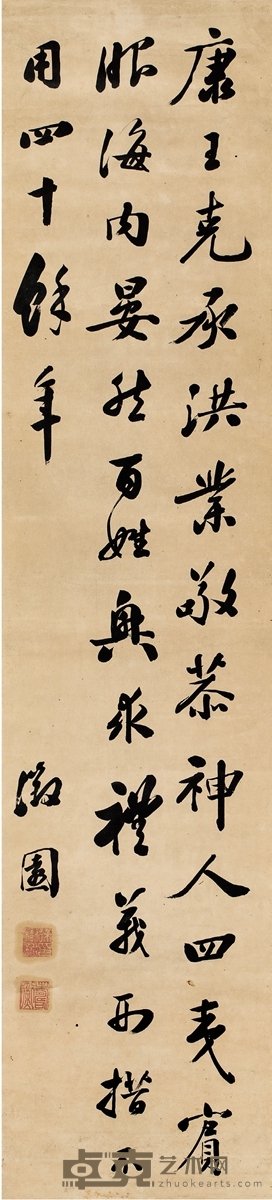 康王克承洪業敬恭神人四夷賓
服海内晏然百姓興於禮義刑措不
用四十餘年
澂園
卓克艺术网
zhuokearts.com